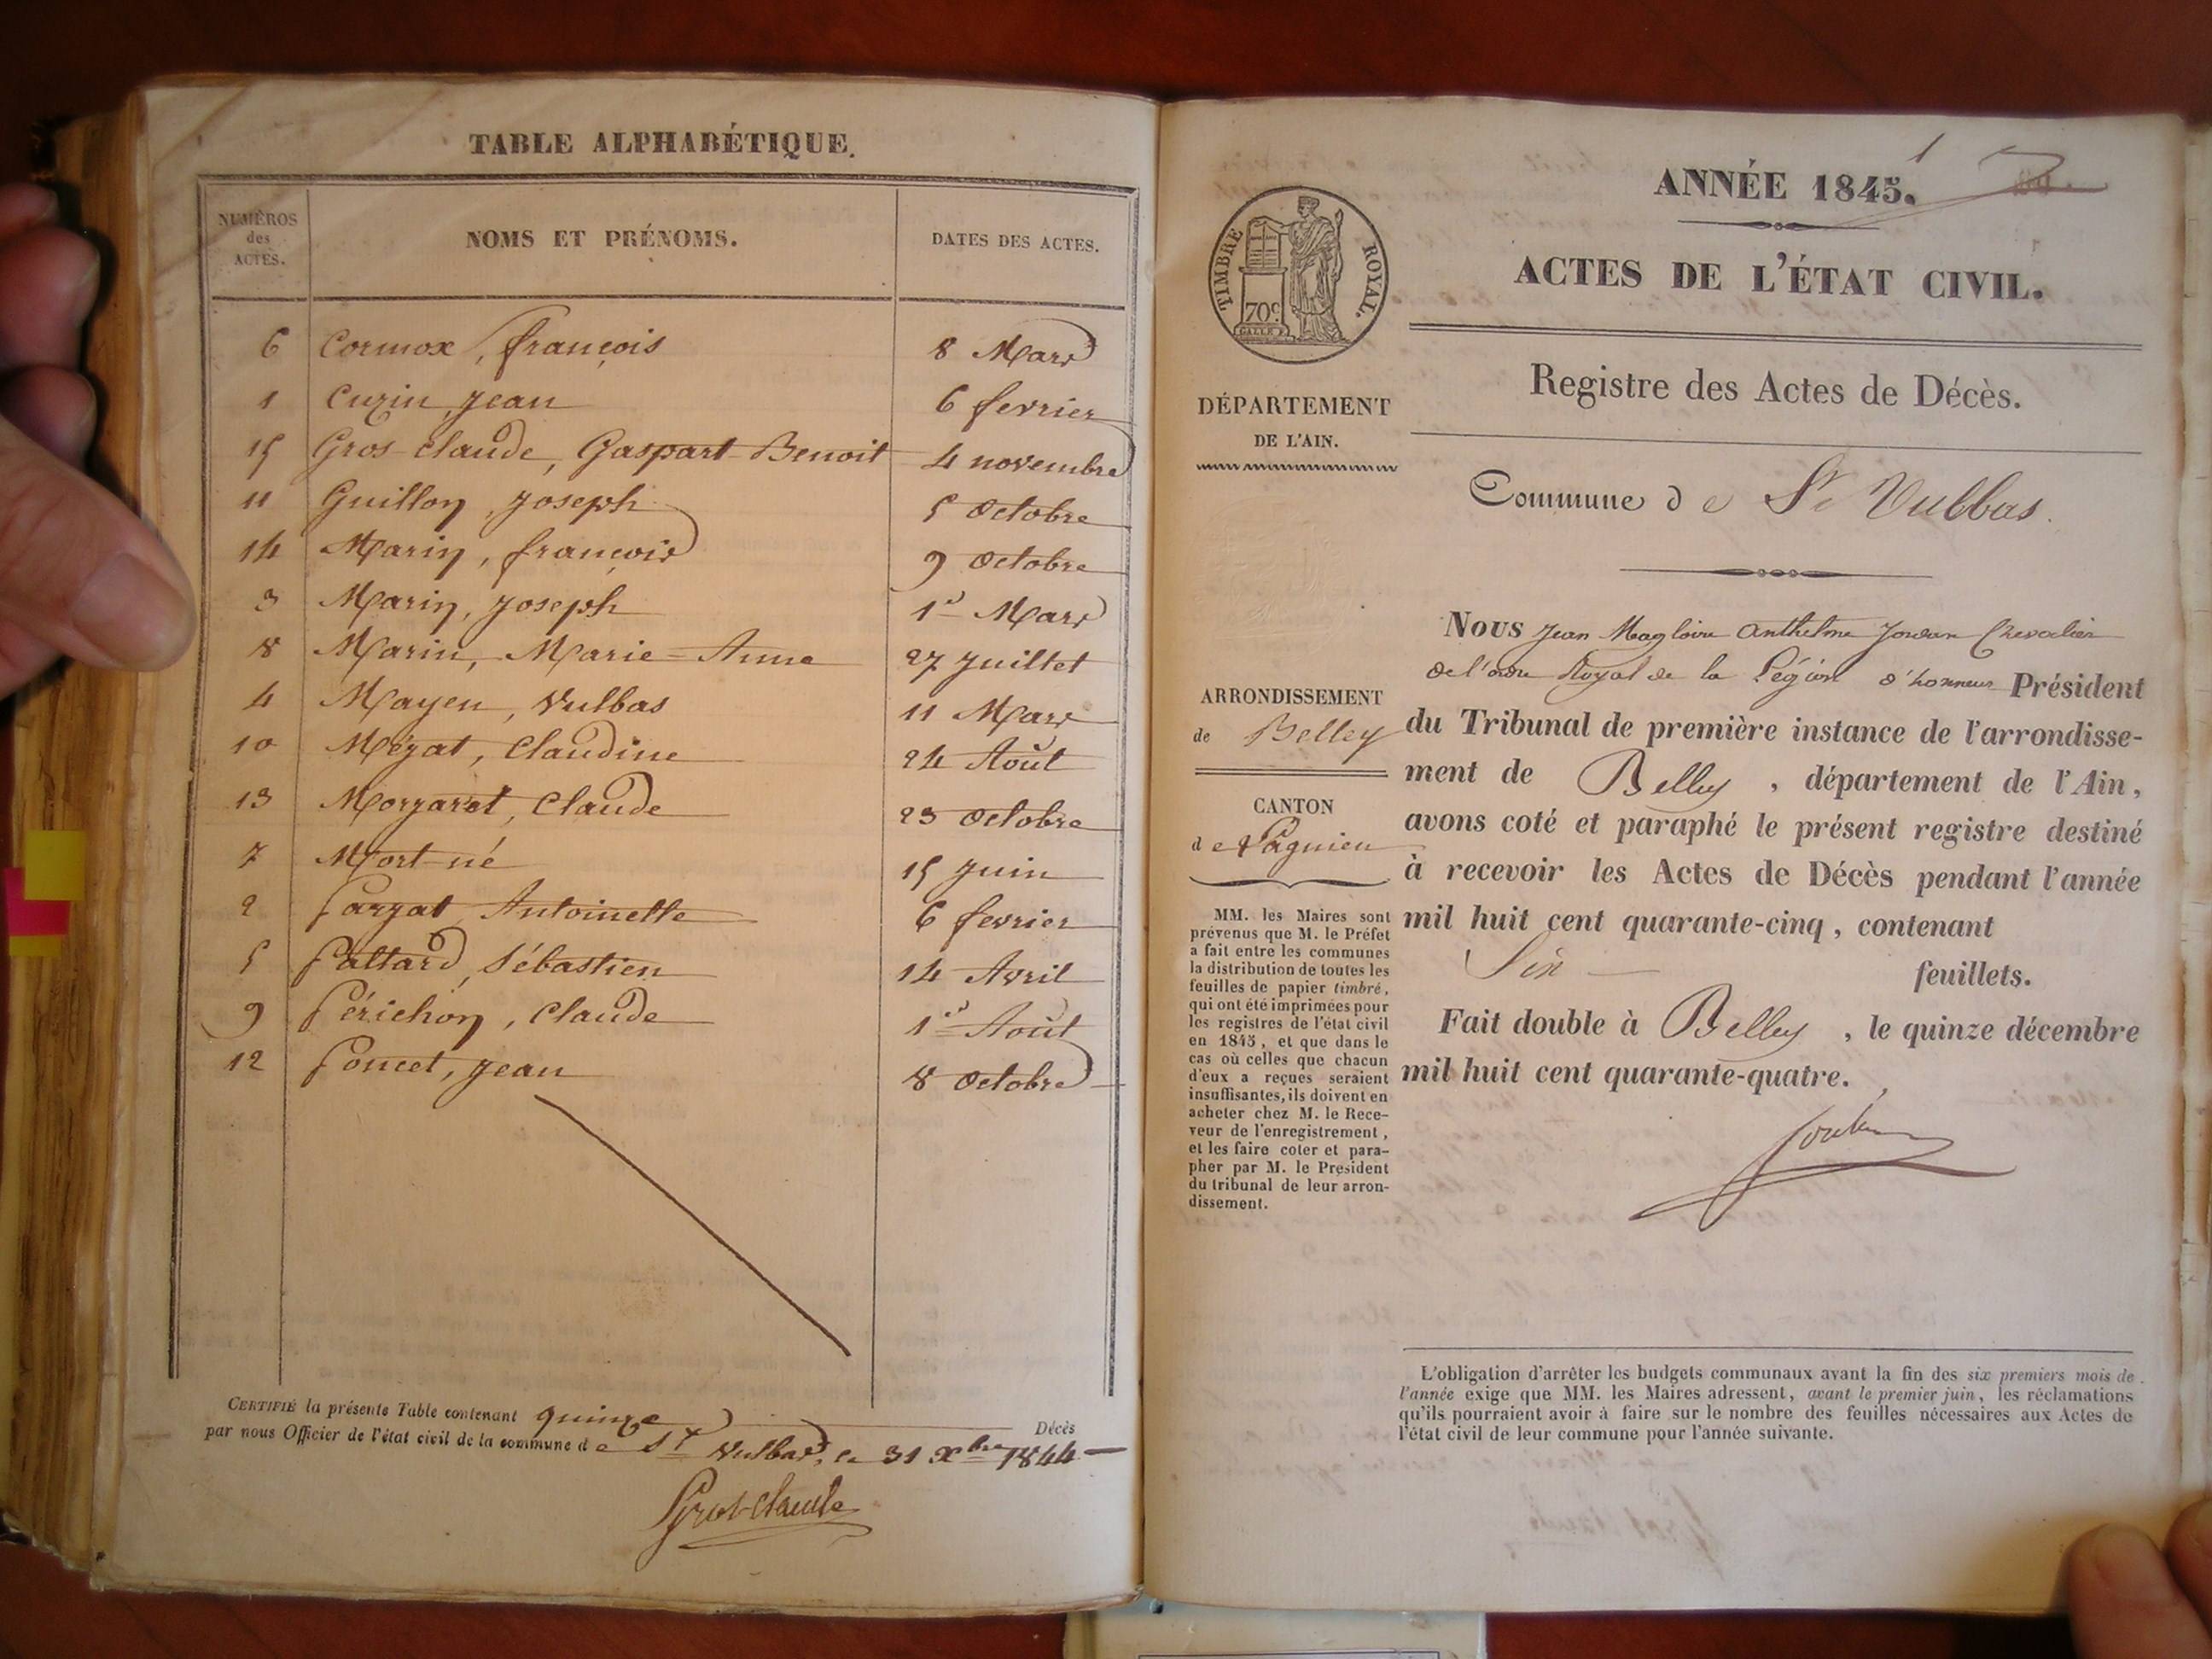 TABLE ALPHABÉTIQUE.
NUMÉROS des ACTES. NOMS ET PRÉNOMS. DATES DES ACTES.
6 Cormox, françois 8 Mars
1 Cuzin Jean 6 fevrier
15 Gros-Claude, Gaspart-Benoit 4 novembre
11 Guillon, Joseph 5 Octobre
14 Marin, françois 9 Octobre
3 Marin, Joseph 1er Mars
8 Marin, Marie-Anne 27 Juillet
4 Mayen, Vulbas 11 Mars
10 Mézat, Claudine 24 Août
13 Morzaret, Claude 23 Octobre
7 Mort-né 15 Juin
2 Parzat Antoinette 6 fevrier
5 Pattard, Sébastien 14 Avril
9 Périchon, Claude 1er Août
12 Poncet, Jean 8 Octobre
CERTIFIÉ la présente Table contenant quinze Décès
par nous Officier de l'état civil de la commune de St Vulbas, le 31 Xbre 1844
Gros-Claude
1
ANNÉE 1845.
ACTES DE L'ÉTAT CIVIL.
TIMBRE ROYAL.
70c
Registre des Actes de Décès.
DÉPARTEMENT
DE L'AIN.
Commune de St Vulbas.
ARRONDISSEMENT
de Belley
CANTON
de Lagnieu
MM. les Maires sont
prévenus que M. le Préfet
a fait entre les communes
la distribution de toutes les
feuilles de papier timbré,
qui ont été imprimées pour
les registres de l'état civil
en 1845, et que dans le
cas où celles que chacun
d'eux a reçues seraient
insuffisantes, ils doivent en
acheter chez M. le Rece-
veur de l'enregistrement,
et les faire coter et para-
pher par M. le President
du tribunal de leur arron-
dissement.
Nous Jean Magloire Anthelme Jordan Chevalier
de l'ordre Royal de la Légion d'honneur Président
du Tribunal de première instance de l'arrondisse-
ment de Belley, département de l'Ain,
avons coté et paraphé le présent registre destiné
à recevoir les Actes de Décès pendant l'année
mil huit cent quarante-cinq, contenant
Six feuillets.
Fait double à Belley, le quinze décembre
mil huit cent quarante-quatre.
L'obligation d'arrêter les budgets communaux avant la fin des six premiers mois de
l'année exige que MM. les Maires adressent, avant le premier juin, les réclamations
qu'ils pourraient avoir à faire sur le nombre des feuilles nécessaires aux Actes de
l'état civil de leur commune pour l'année suivante.